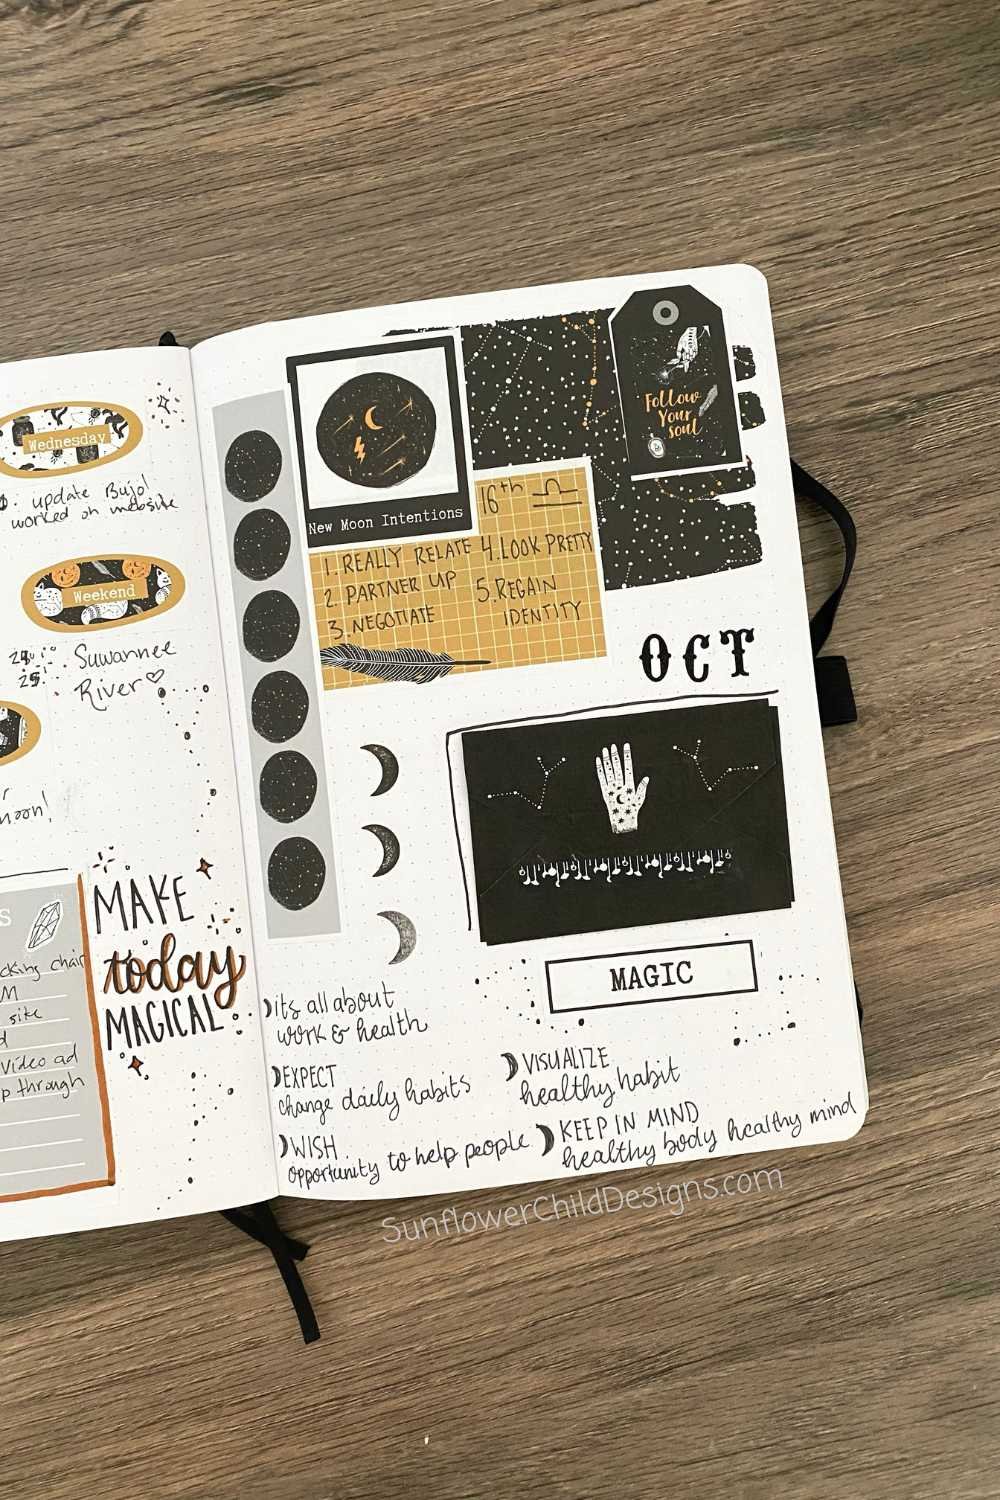 Wednesday
update Bujo!
worked on website
Weekend
Suwannee
25.
River♡
moon!
cking chair
M
site
d
video ad
p through
MAKE
today
MAGICAL
New Moon Intentions
Follow
Your
soul
16th ♎
1. REALLY RELATE
2. PARTNER UP
3. NEGOTIATE
4. LOOK PRETTY
5. REGAIN
IDENTITY
OCT
MAGIC
its all about
work & health
EXPECT
change daily habits
WISH
opportunity to help people
VISUALIZE
healthy habit
KEEP IN MIND
healthy body healthy mind
SunflowerChildDesigns.com